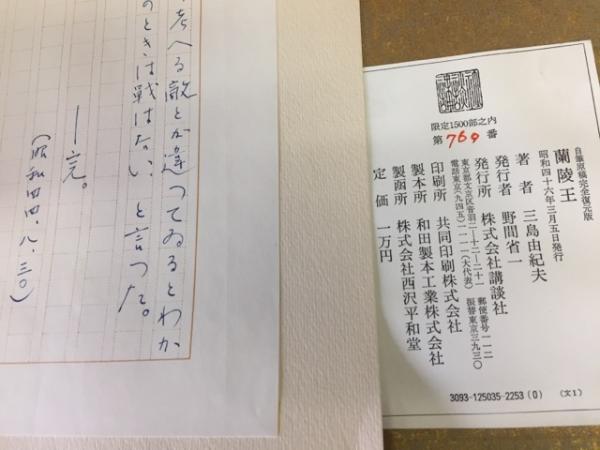 限定1500部之内
第769番
自筆原稿完全復元版
蘭陵王
昭和四十六年三月五日発行
著者 三島由紀夫
発行者 野間省一
発行所 株式会社講談社
東京都文京区音羽二―十二―二十一 郵便番号一一二
電話東京(九四五)一一一一(大代表) 振替東京三九三〇
印刷所 共同印刷株式会社
製本所 和田製本工業株式会社
製函所 株式会社西沢平和堂
定価 一万円
3093-125035-2253 (0) (文1)
考へる敵とが違つてゐるとわか
のときは戦はない、と言つた。
――完。
(昭和四四、八、三〇)